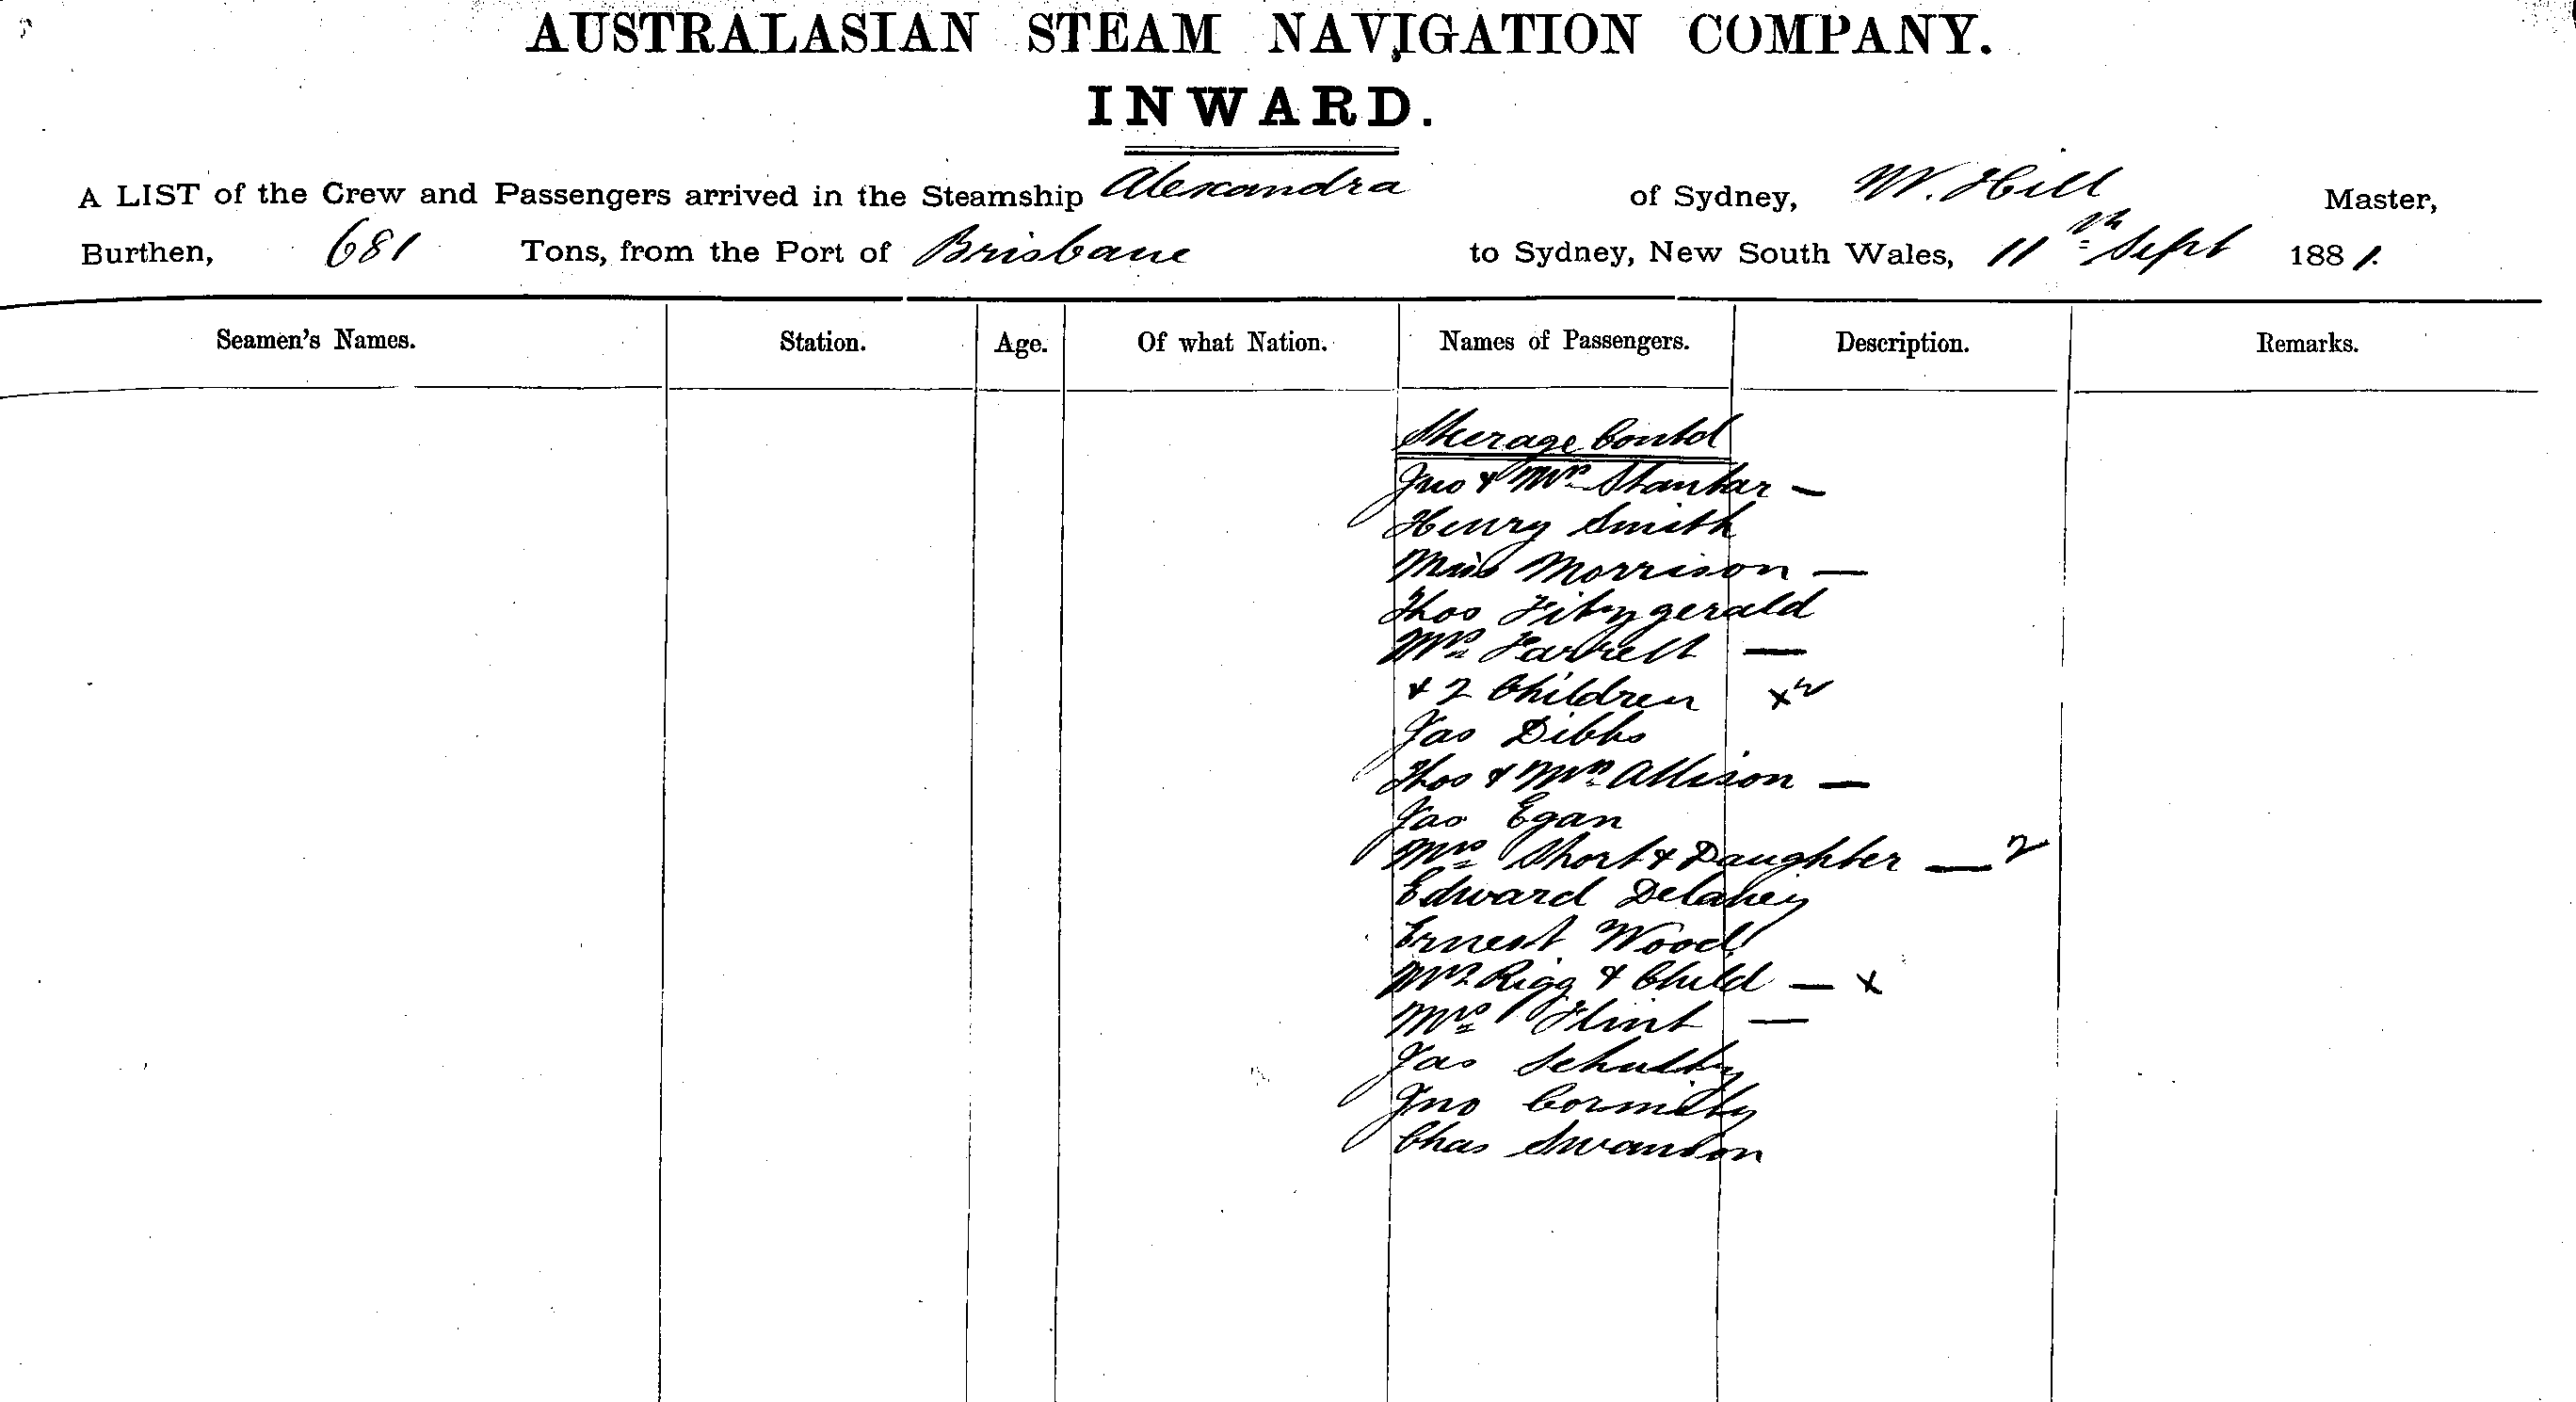 AUSTRALASIAN STEAM NAVIGATION COMPANY.
INWARD.
A LIST of the Crew and Passengers arrived in the Steamship Alexandra of Sydney, W. Hill Master,
Burthen, 681 Tons, from the Port of Brisbane to Sydney, New South Wales, 11th Sept 1881.
Seamen's Names. Station. Age. Of what Nation. Names of Passengers. Description. Remarks.
Steerage Contd
Jno & Mrs Stantar —
Henry Smith
Miss Morrison —
Thos Fitzgerald
Mrs Farrell —
& 2 Children x2
Jas Dibbs
Thos & Mrs Allison —
Jas Egan
Mrs Short & Daughter — 2
Edward Delaney
Ernest Wood
Mrs Rigg & Child — x
Mrs Flint —
Jas Schultz
Jno
Chas Swanson